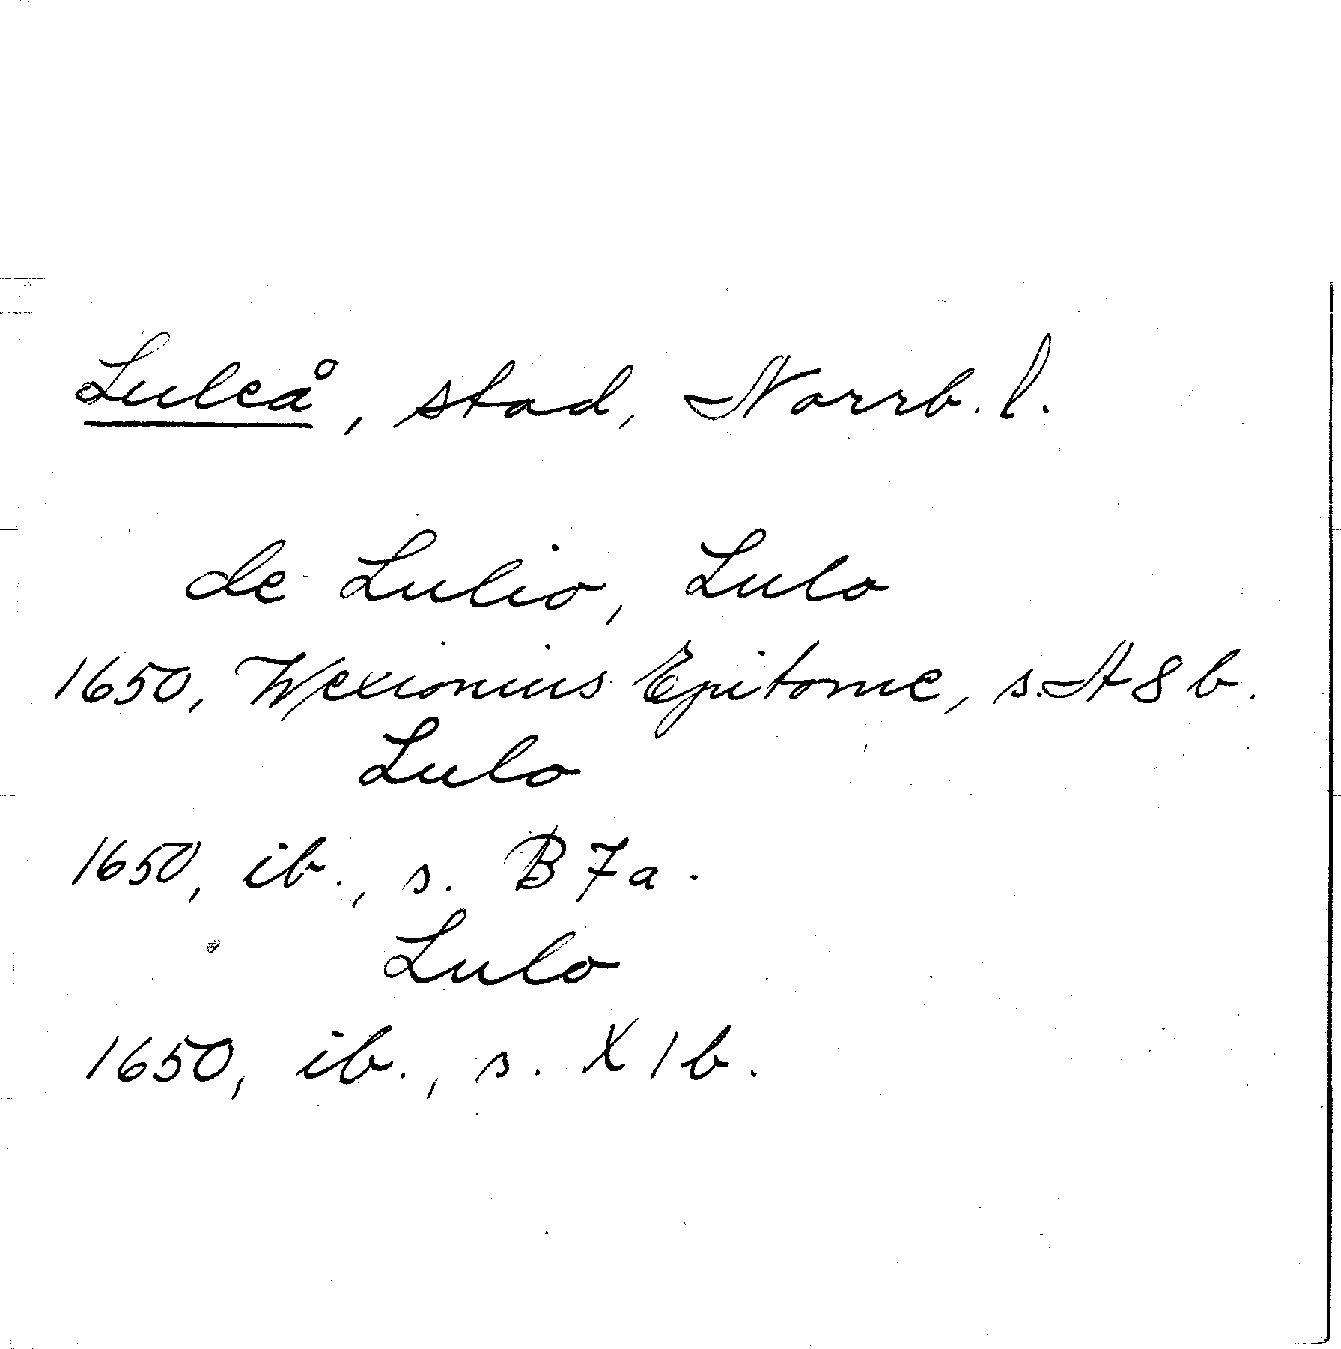 Luleå, stad, Norrb. l.
de Lulio, Lulo
1650, Wexionius Epitome, s. A 8 b.
Lulo
1650, ib., s. B 7 a.
Lulo
1650, ib., s. X 1 b.